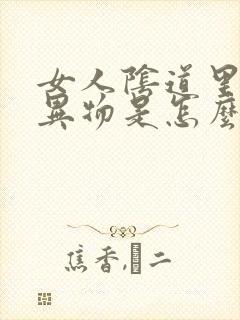 女人陰道里
異物是怎麼
焦香,�二